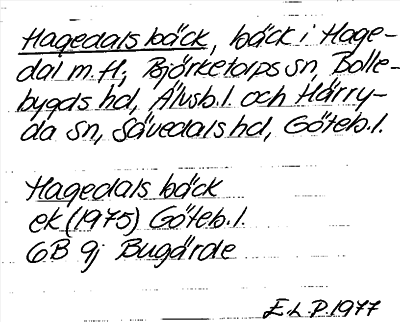 Hagedals bäck, bäck i Hage-
dal m.fl., Björketorps sn, Bolle-
bygds hd, Älvsb.l. och Härry-
da sn, Sävedals hd, Göteb.l.
Hagedals bäck
ek (1975) Göteb.l.
6B 9j Bugärde
E.L.P. 1977